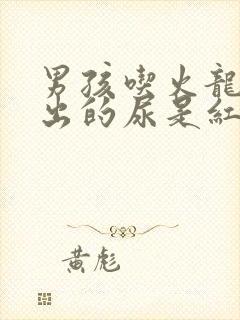 男孩喫火龍
出的尿是紅
黃彪